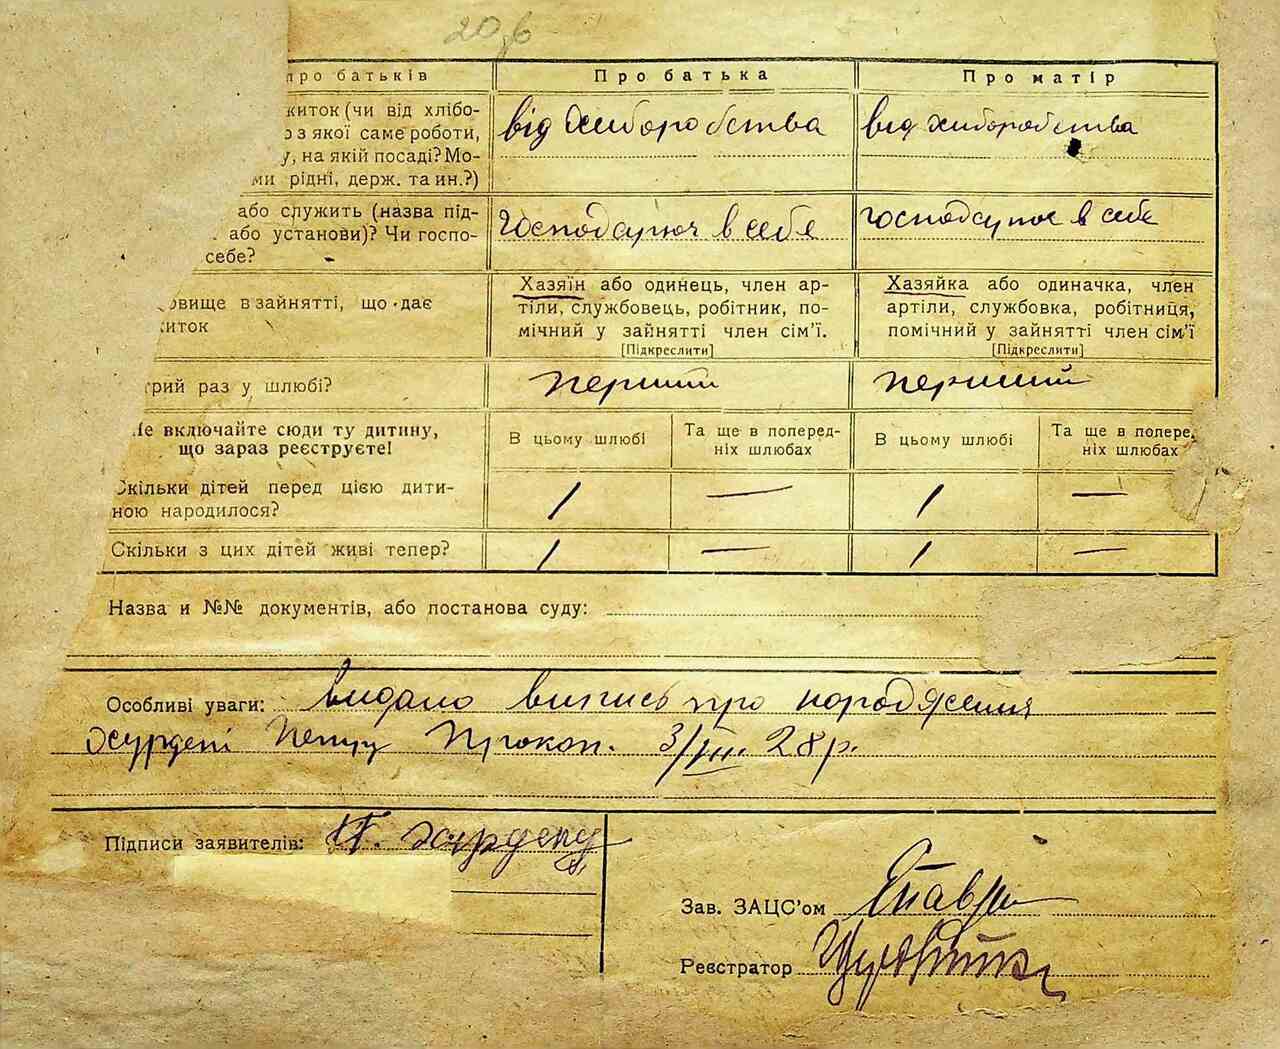 20
про батьків Про батька Про матір
житок (чи від хлібо-
з якої саме роботи,
у, на якій посаді? Мо-
ми рідні, держ. та ин.?)
від хліборобства
від хліборобства
або служить (назва під-
або установи)? Чи госпо-
себе?
господарює в себе
господарює в себе
овище в зайнятті, що дає
житок
Хазяїн або одинець, член ар-
тіли, службовець, робітник, по-
мічний у зайнятті член сім’ї.
[Підкреслити]
Хазяйка або одиначка, член
артіли, службовка, робітниця,
помічний у зайнятті член сім’ї
[Підкреслити]
трий раз у шлюбі? перший перший
Не включайте сюди ту дитину,
що зараз реєструєте!
В цьому шлюбі
Та ще в поперед-
ніх шлюбах
В цьому шлюбі
Та ще в попере
ніх шлюбах
Скільки дітей перед цією дити-
ною народилося?
1 — 1 —
Скільки з цих дітей живі тепер? 1 — 1 —
Назва и №№ документів, або постанова суду:
Особливі уваги: видано випись про народження
Прокоп. 3/VIII. 28 р.
Підписи заявителів:
Зав. ЗАЦС’ом
Реєстратор